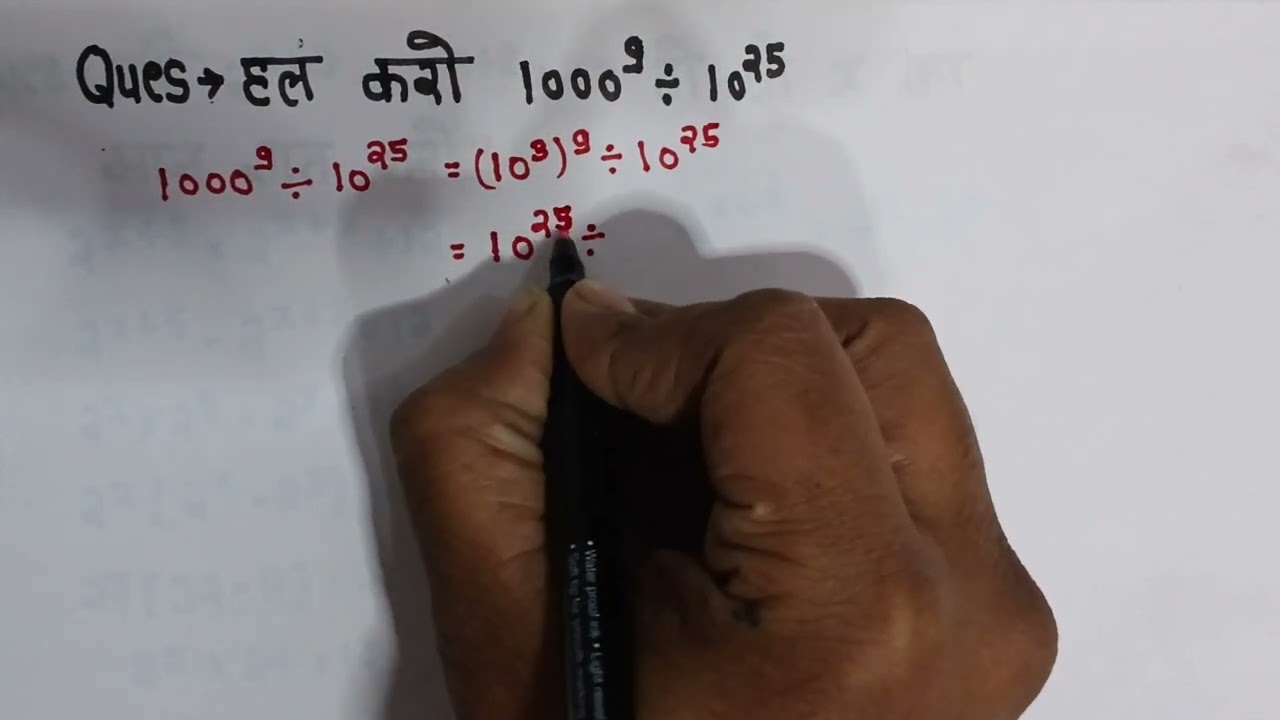 Ques → हल करो 1000⁹ ÷ 10²⁵
1000⁹ ÷ 10²⁵ = (10³)⁹ ÷ 10²⁵
= 10²⁵ ÷
• Water proof ink • Light